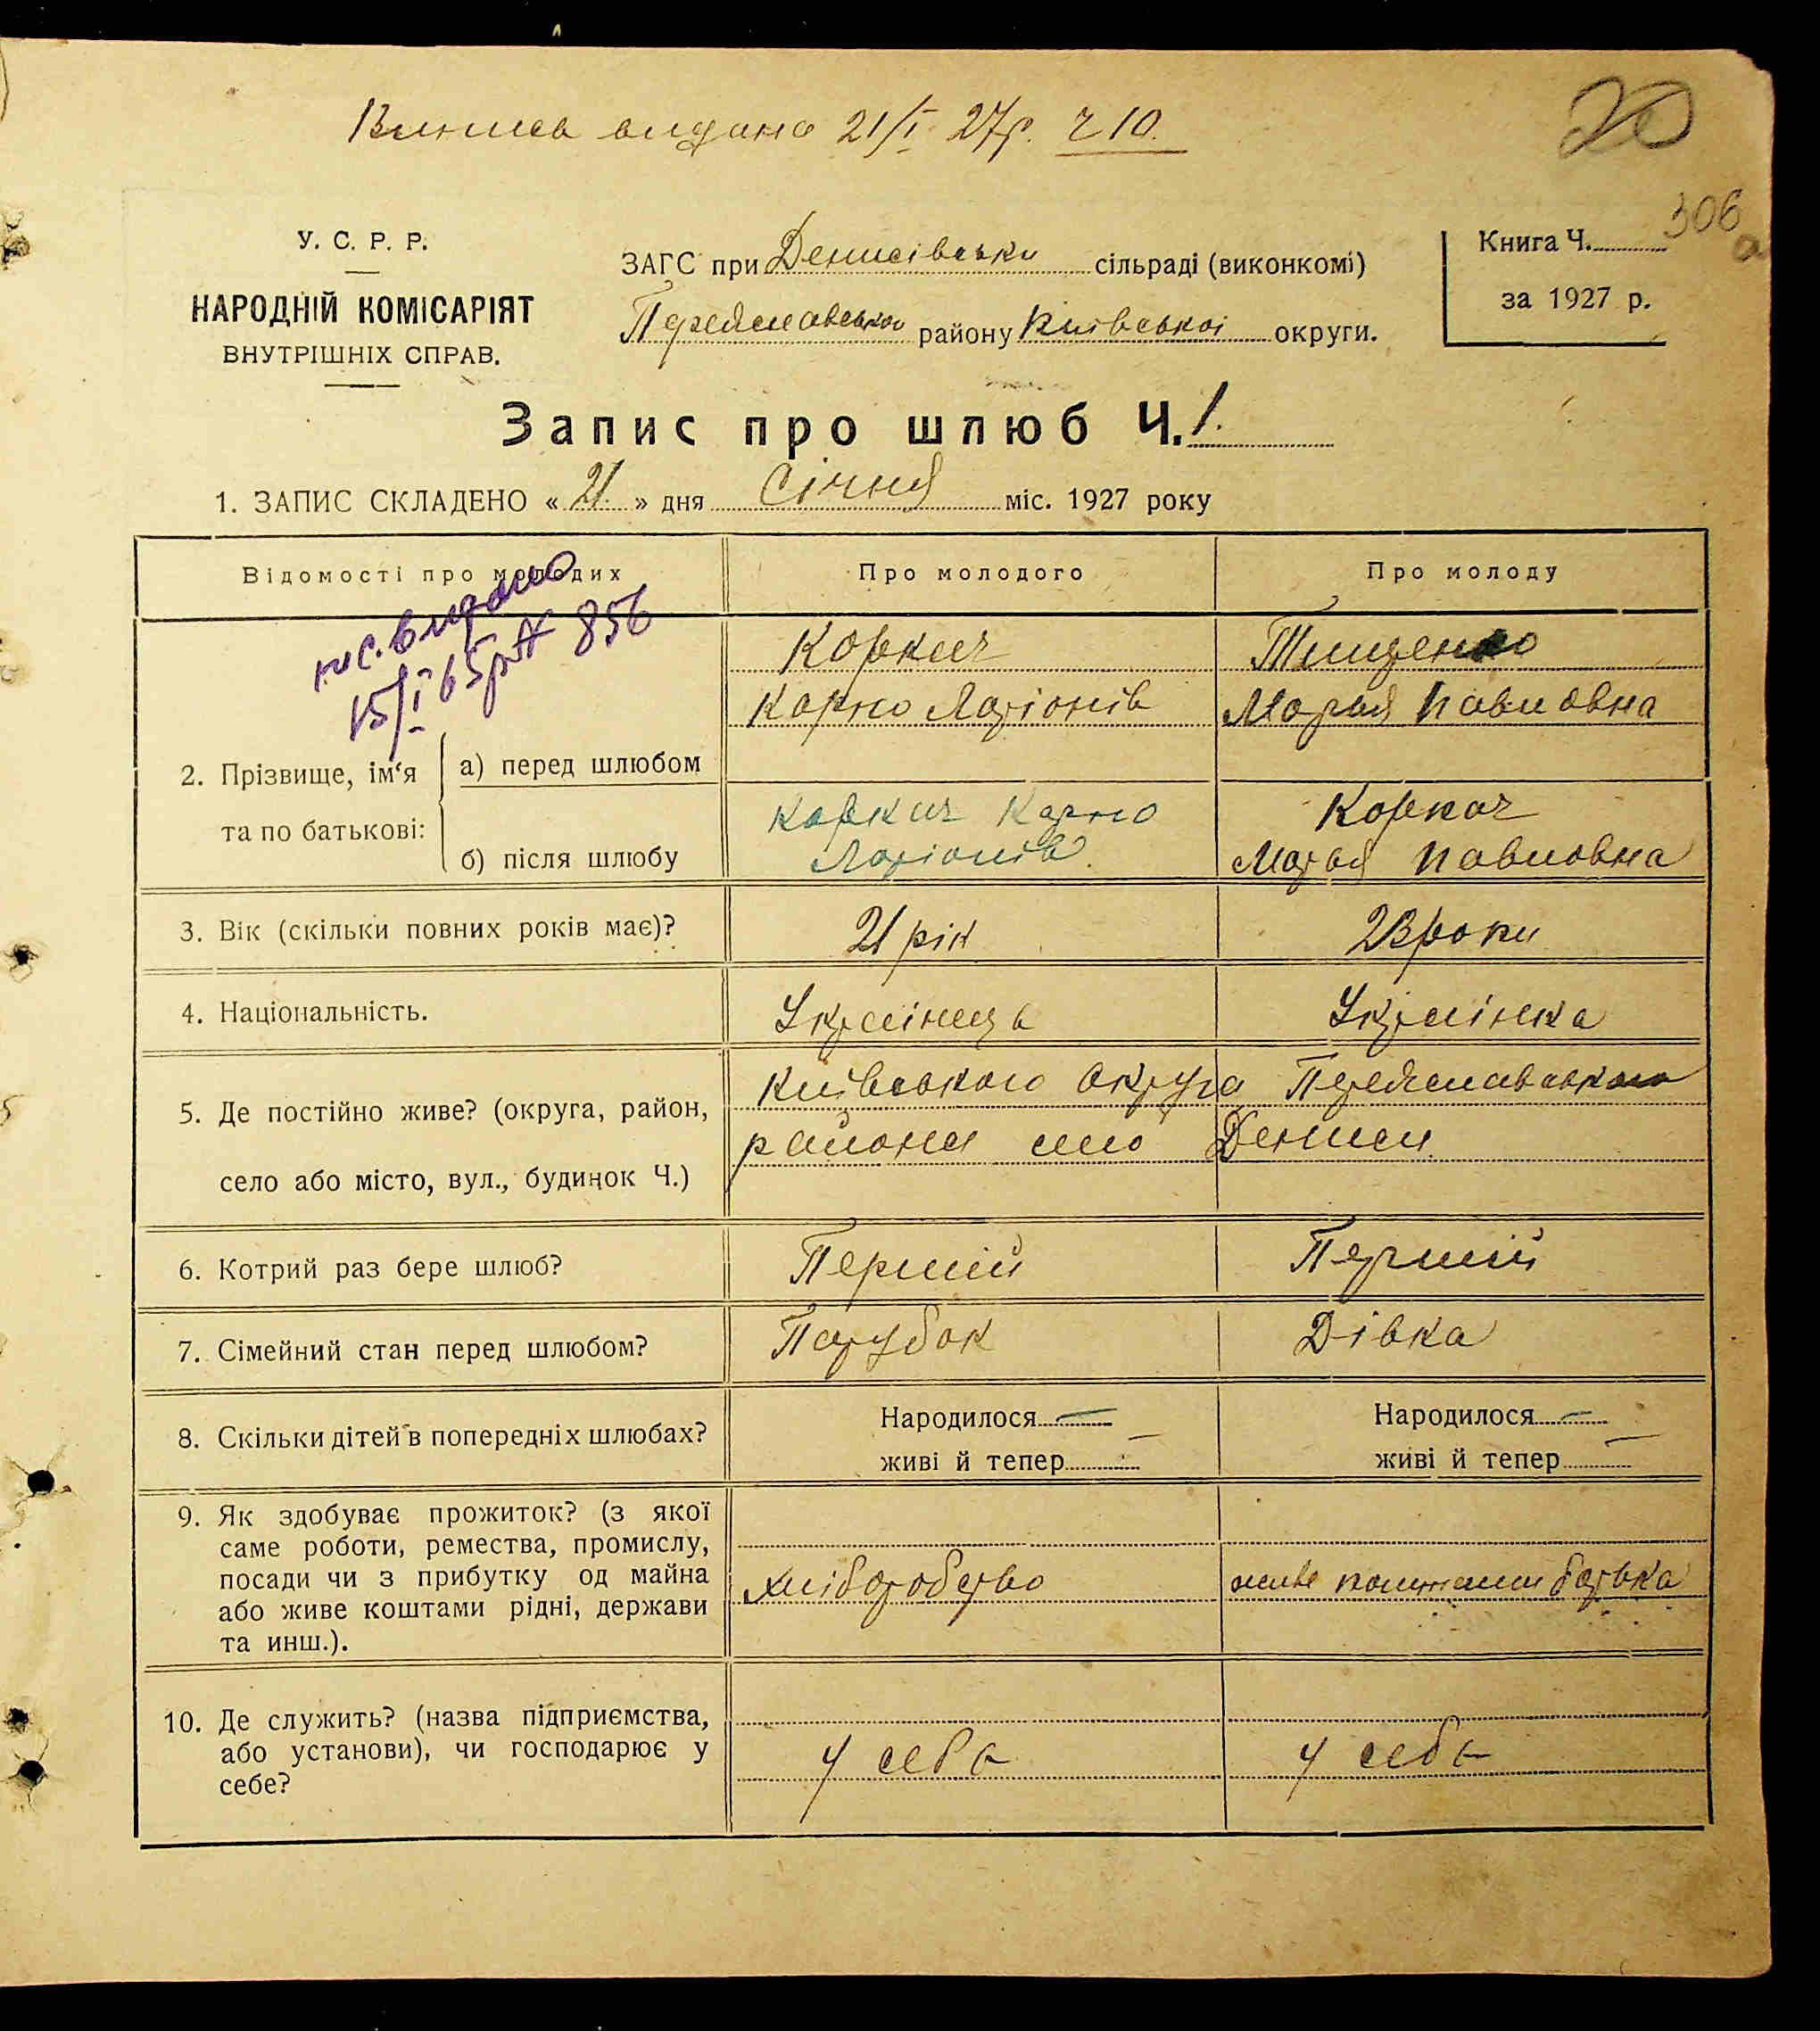 Випись видана 21/I 27р. ч 10.
20
306
а
У. С. Р. Р.
НАРОДНІЙ КОМІСАРІЯТ
ВНУТРІШНІХ СПРАВ.
ЗАГС при Денисівськи сільраді (виконкомі)
Переяславського району Київської округи.
Книга Ч.
за 1927 р.
Запис про шлюб Ч. 1.
1. ЗАПИС СКЛАДЕНО « 21. » дня Січня міс. 1927 року
Відомості про молодих
Про молодого
Про молоду
видано
15/I 65р № 856
2. Прізвище, ім‘я та по батькові:
а) перед шлюбом
Коркач
Карпо Ларіонів
Тищенко
Марья Павловна
б) після шлюбу
Коркач Карпо
Ларіонів.
Коркач
Марья Павловна
3. Вік (скільки повних років має)?
21 рік
23 роки
4. Національність.
Українець
Українка
5. Де постійно живе? (округа, район,
село або місто, вул., будинок Ч.)
Київського округа Переяславського
района село Дениси
6. Котрий раз бере шлюб?
Перший
Перший
7. Сімейний стан перед шлюбом?
Парубок
Дівка
8. Скільки дітей в попередніх шлюбах?
Народилося —
живі й тепер —
Народилося —
живі й тепер —
9. Як здобуває прожиток? (з якої
саме роботи, ремества, промислу,
посади чи з прибутку од майна
або живе коштами рідні, держави
та инш.).
хліборобство
живе коштами батька
10. Де служить? (назва підприємства,
або установи), чи господарює у
себе?
у себе
у себе